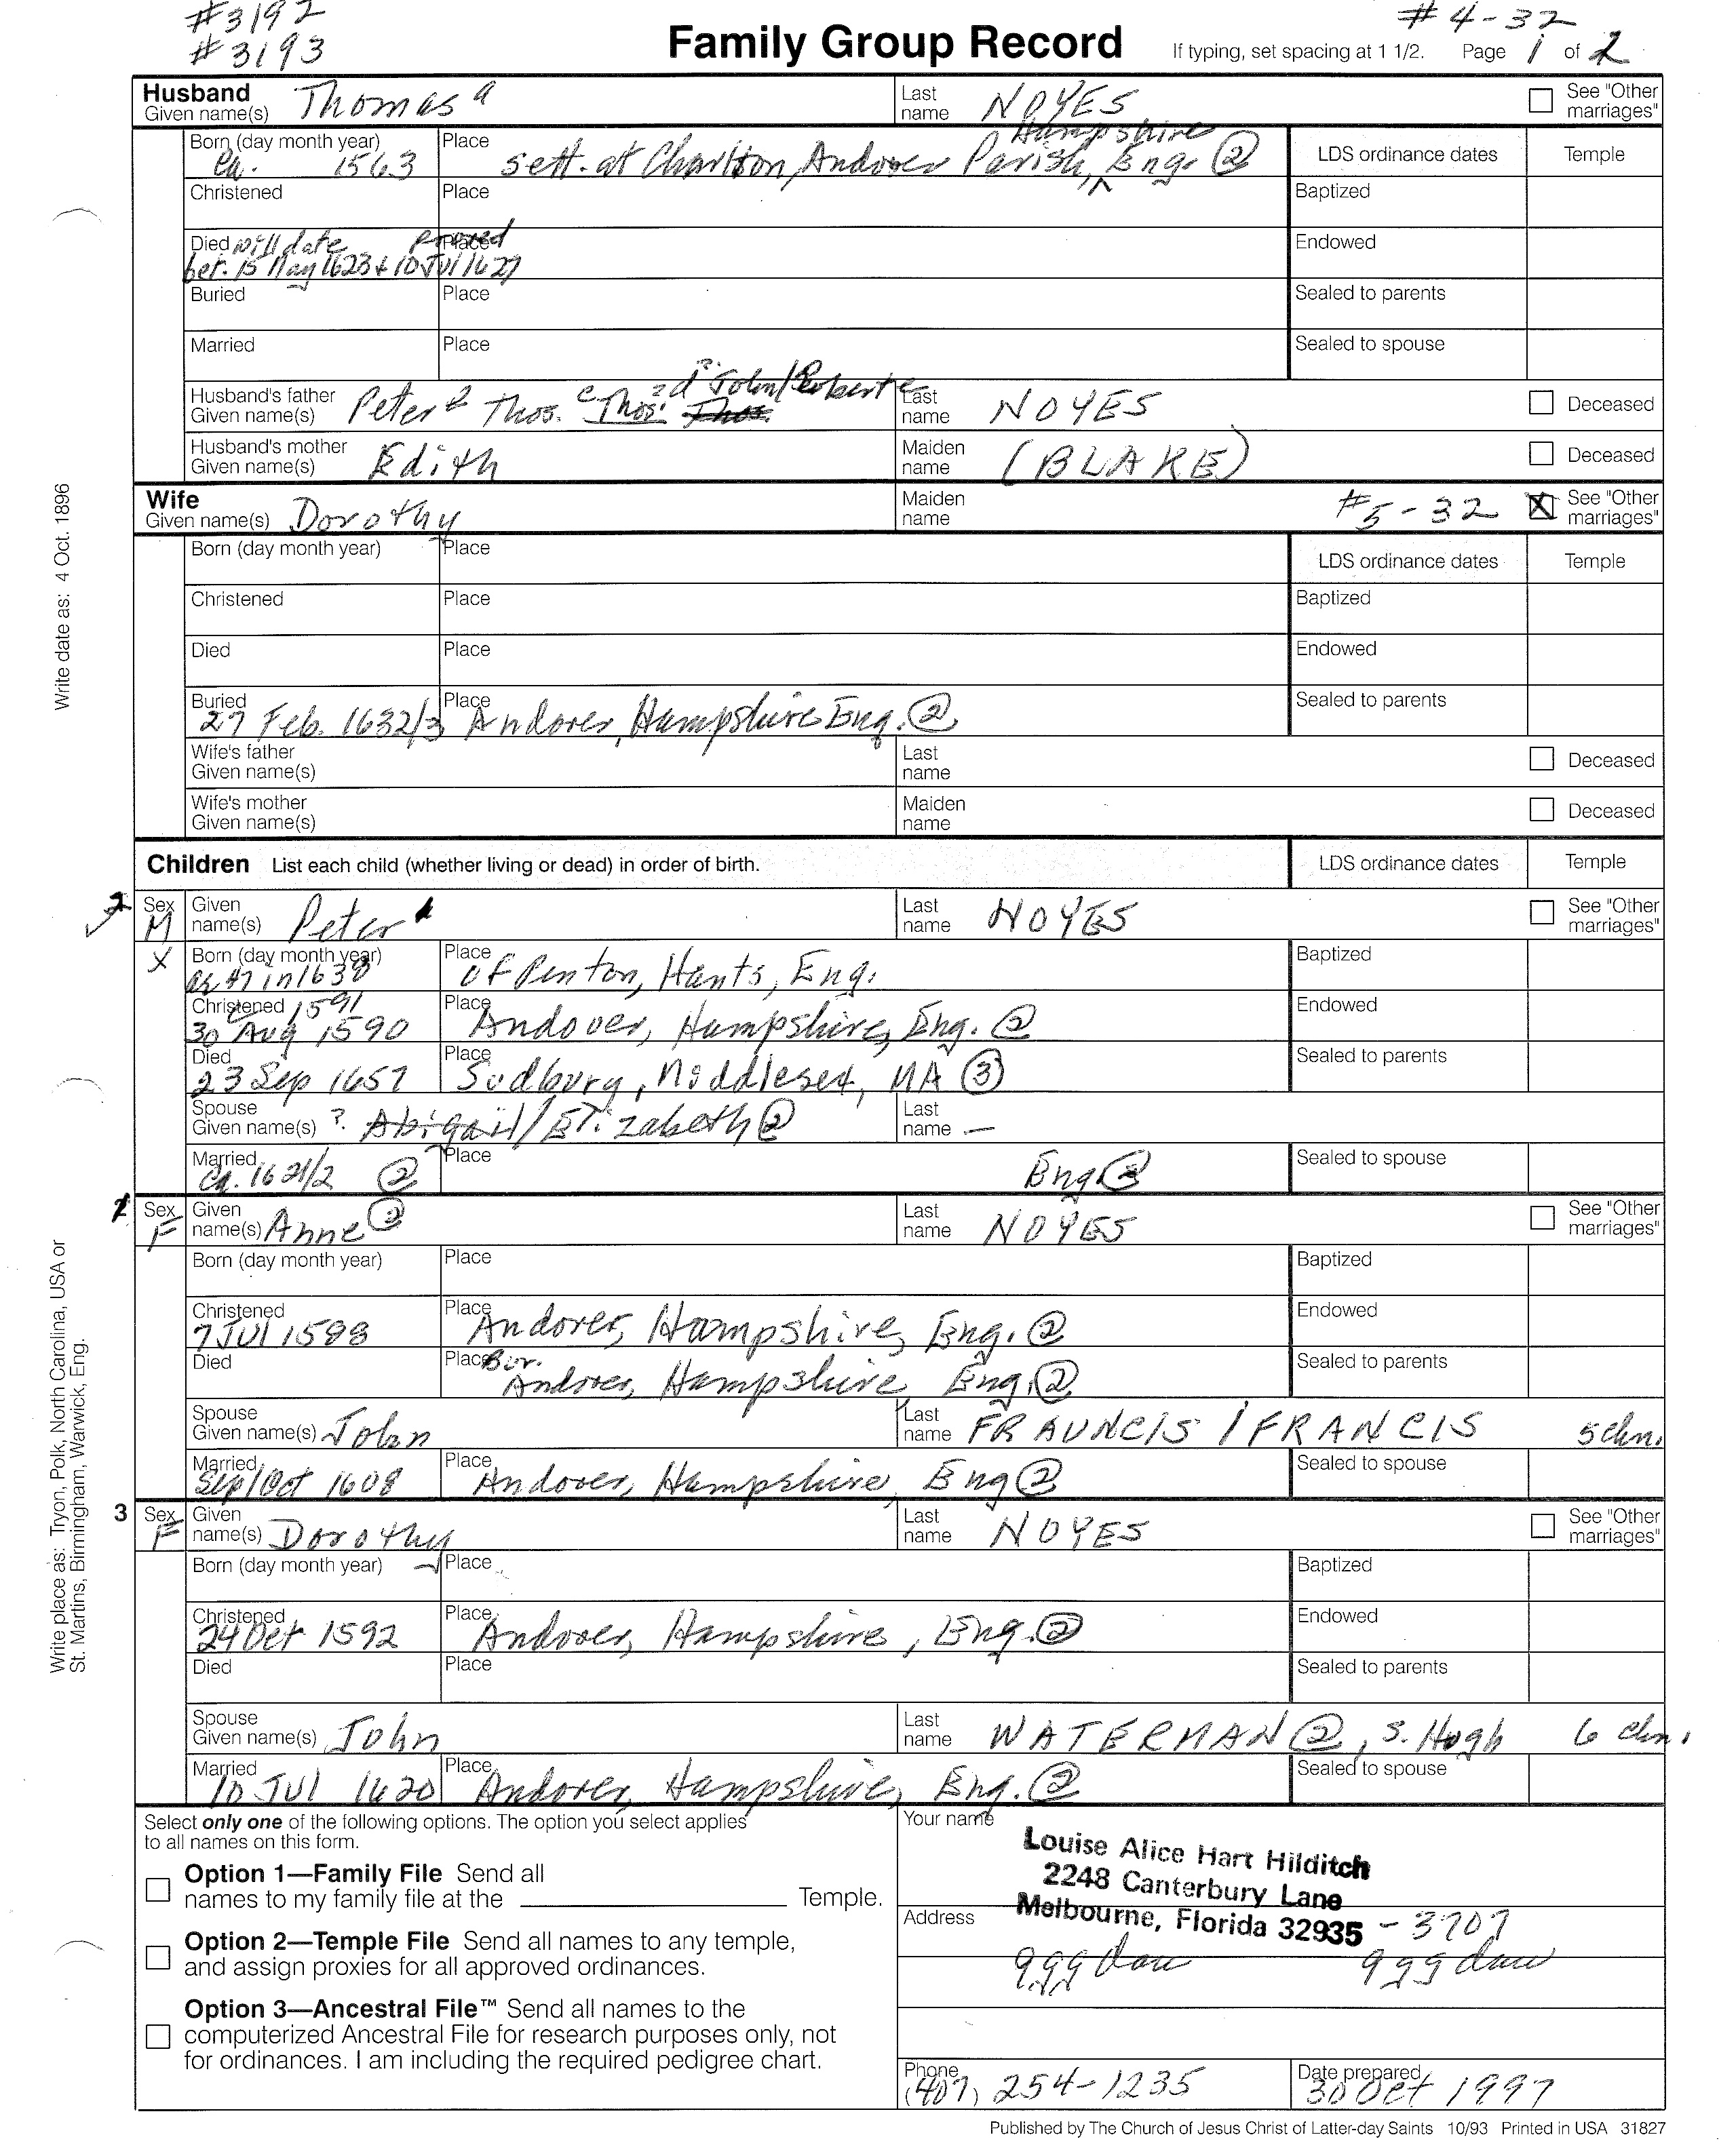 #3192
#3193
# 4-32
Family Group Record
If typing, set spacing at 1 1/2. Page 1 of 2
Husband
Given name(s) Thomas a
Last name NOYES
See "Other marriages"
Born (day month year) Ca. 1563
Place sett. at Charlton, Andover Parish, Hampshire Eng. ②
LDS ordinance dates
Temple
Christened
Place
Baptized
Died will date Proved
bet. 15 May 1623 & 10 Jul 1627
Place
Endowed
Buried
Place
Sealed to parents
Married
Place
Sealed to spouse
Husband's father
Given name(s) Peter b Thos. c Thos. 2d ?. John/Roberte
Last name NOYES
Deceased
Husband's mother
Given name(s) Edith
Maiden name (BLAKE)
Deceased
Wife
Given name(s) Dorothy
Maiden name
#5-32
X See "Other marriages"
Born (day month year)
Place
LDS ordinance dates
Temple
Christened
Place
Baptized
Died
Place
Endowed
Buried 27 Feb. 1632/3
Place Andover, Hampshire Eng. ②
Sealed to parents
Wife's father
Given name(s)
Last name
Deceased
Wife's mother
Given name(s)
Maiden name
Deceased
Children List each child (whether living or dead) in order of birth.
LDS ordinance dates
Temple
2 Sex M
Given name(s) Peter
Last name NOYES
See "Other marriages"
X
Born (day month year) ag 47 in 1638
Place of Penton, Hants, Eng.
Baptized
Christened 1591
30 Aug 1590
Place Andover, Hampshire, Eng. ②
Endowed
Died 23 Sep 1657
Place Sudbury, Middlesex, MA ③
Sealed to parents
Spouse
Given name(s) ?. Abigail/Elizabeth ②
Last name —
Married Ca. 1621/2 ②
Place Eng ②
Sealed to spouse
1 Sex F
Given name(s) Anne ②
Last name NOYES
See "Other marriages"
Born (day month year)
Place
Baptized
Christened 7 Jul 1588
Place Andover, Hampshire, Eng. ②
Endowed
Died
Place Bur. Andover, Hampshire, Eng. ②
Sealed to parents
Spouse
Given name(s) John
Last name FRAUNCIS / FRANCIS 5 chn.
Married Sep/Oct 1608
Place Andover, Hampshire, Eng ②
Sealed to spouse
3 Sex F
Given name(s) Dorothy
Last name NOYES
See "Other marriages"
Born (day month year)
Place
Baptized
Christened 24 Oct 1592
Place Andover, Hampshire, Eng. ②
Endowed
Died
Place
Sealed to parents
Spouse
Given name(s) John
Last name WATERMAN ②, s. Hugh 6 chn.
Married 10 Jul 1620
Place Andover, Hampshire, Eng. ②
Sealed to spouse
Select only one of the following options. The option you select applies
to all names on this form.
Option 1—Family File Send all
names to my family file at the ____ Temple.
Option 2—Temple File Send all names to any temple,
and assign proxies for all approved ordinances.
Option 3—Ancestral File™ Send all names to the
computerized Ancestral File for research purposes only, not
for ordinances. I am including the required pedigree chart.
Your name
Louise Alice Hart Hilditch
2248 Canterbury Lane
Address
Melbourne, Florida 32935 - 3707
ggg dau ggg dau
Phone (407) 254-1235
Date prepared 30 Oct 1997
Published by The Church of Jesus Christ of Latter-day Saints 10/93 Printed in USA 31827
Write date as: 4 Oct. 1896
Write place as: Tryon, Polk, North Carolina, USA or
St. Martins, Birmingham, Warwick, Eng.